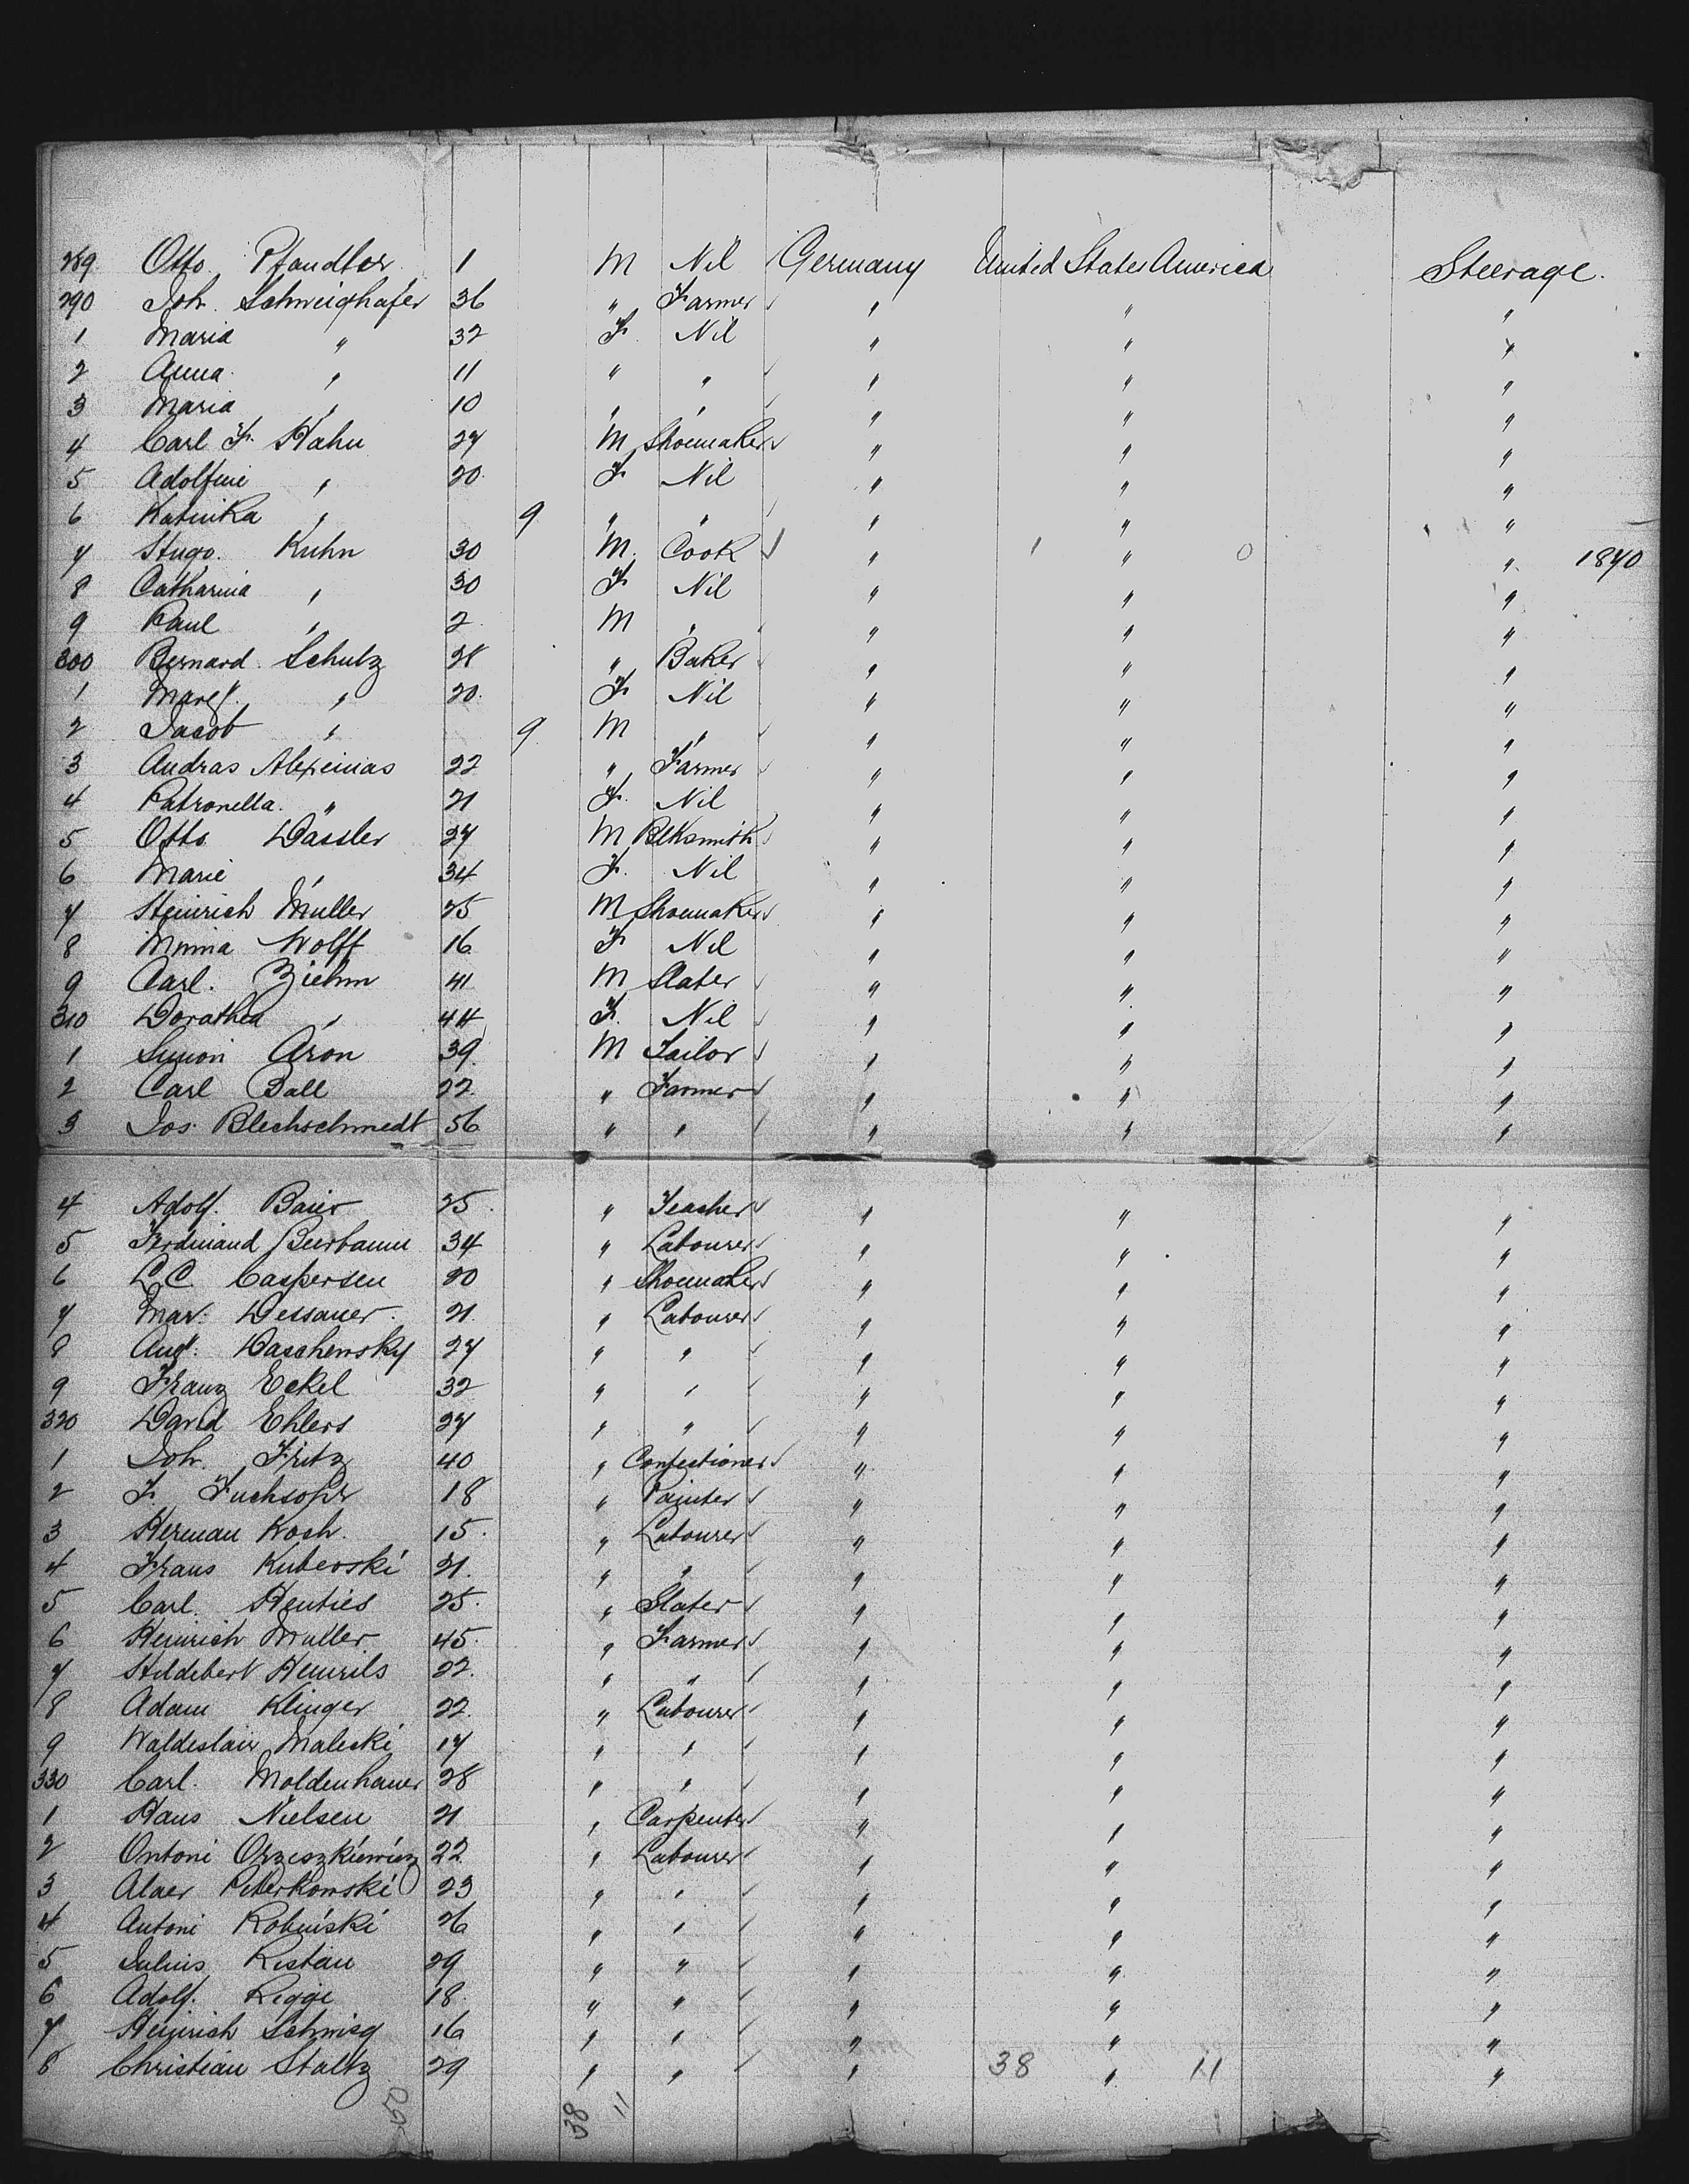 289 Otto Pfandler 1 M Nil Germany United States America Steerage.
290 Joh. Schweighafer 36 " Farmer " " "
1 Maria " 32 F Nil " " "
2 Anna " 11 " " " " "
3 Maria " 10 " " " " "
4 Carl F. Hahn 27 M Shoemaker " " "
5 Adolfine " 20 F Nil " " "
6 Katinka " 9 " " " " "
7 Hugo Kuhn 30 M. Cook " " " 1870
8 Catharina " 30 F Nil " " "
9 Paul " 2 M " " " "
300 Bernard Schulz 28 " Baker " " "
1 Marg. " 20 F Nil " " "
2 Jacob " 9 M " " " "
3 Andras Alexeinas 22 " Farmer " " "
4 Patronella " 21 F. Nil " " "
5 Otto Dassler 27 M Blksmith " " "
6 Marie " 34 F. Nil " " "
7 Heinrich Muller 25 M Shoemaker " " "
8 Minna Wolff 16 F Nil " " "
9 Carl. Ziehm 41 M Slater " " "
310 Dorathea " 44 F. Nil " " "
1 Simon Aron 39 M Tailor " " "
2 Carl Ball 22 " Farmer " " "
3 Jos. Blechschmedt 56 " " " " "
4 Adolf. Baier 25 " Teacher " " "
5 Ferdinand Beerbaum 34 " Labourer " " "
6 L.C. Caspersen 20 " Shoemaker " " "
7 Mar. Dessauer 21 " Labourer " " "
8 Aug. Daschensky 27 " " " " "
9 Franz Eckel 32 " " " " "
320 David Ehlers 27 " " " " "
1 Joh. Fritz 40 " Confectioner " " "
2 F. 18 " Painter " " "
3 Herman Koch 15 " Labourer " " "
4 Frans Kuberski 21 " " " " "
5 Carl. Henties 25 " Slater " " "
6 Heinrich Muller 45 " Farmer " " "
7 Hildebert 22 " " " " "
8 Adam Klinger 22 " Labourer " " "
9 Maleski 17 " " " " "
330 Carl. Moldenhauer 28 " " " " "
1 Hans Nielsen 21 " Carpenter " " "
2 Antoni Orzeszkiewicz 22 " Labourer " " "
3 Peterkowski 23 " " " " "
4 Antoni Robinski 26 " " " " "
5 Julius Ristau 29 " " " " "
6 Adolf. Rigge 18 " " " " "
7 Heinrich Schmieg 16 " " " " "
8 Christian Staltz 29 " " " 38 " 11 "
50 38 11